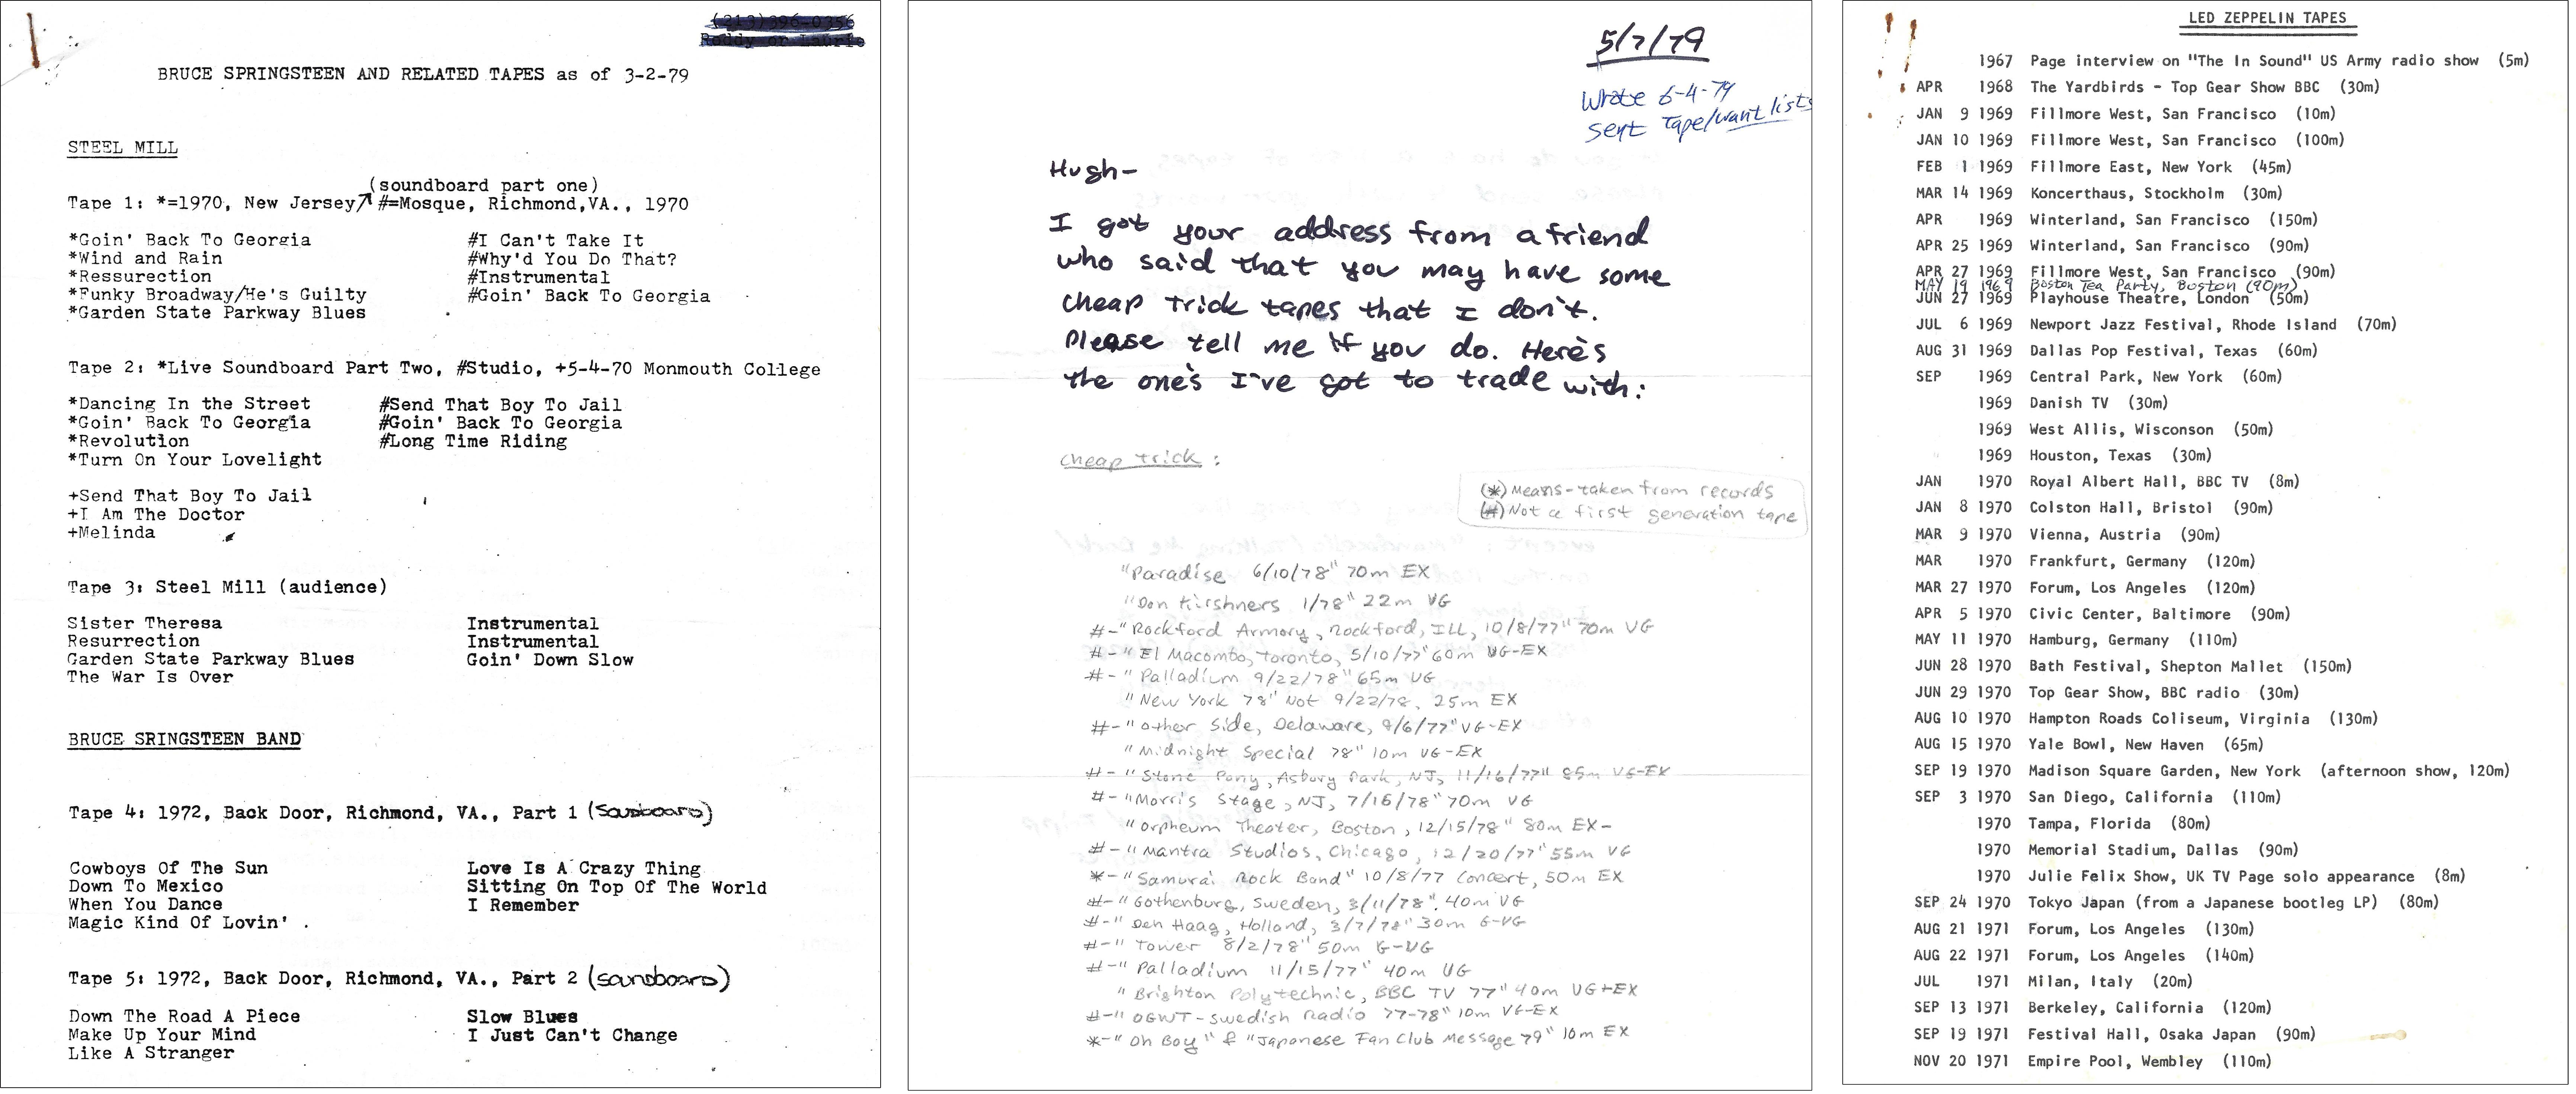 (213)396-0356
Roddy or Laurie
BRUCE SPRINGSTEEN AND RELATED TAPES as of 3-2-79
STEEL MILL
(soundboard part one)
Tape 1: *=1970, New Jersey #=Mosque, Richmond,VA., 1970
*Goin' Back To Georgia #I Can't Take It
*Wind and Rain #Why'd You Do That?
*Ressurection #Instrumental
*Funky Broadway/He's Guilty #Goin' Back To Georgia
*Garden State Parkway Blues
Tape 2: *Live Soundboard Part Two, #Studio, +5-4-70 Monmouth College
*Dancing In the Street #Send That Boy To Jail
*Goin' Back To Georgia #Goin' Back To Georgia
*Revolution #Long Time Riding
*Turn On Your Lovelight
+Send That Boy To Jail
+I Am The Doctor
+Melinda
Tape 3: Steel Mill (audience)
Sister Theresa Instrumental
Resurrection Instrumental
Garden State Parkway Blues Goin' Down Slow
The War Is Over
BRUCE SRINGSTEEN BAND
Tape 4: 1972, Back Door, Richmond, VA., Part 1 (soundboard)
Cowboys Of The Sun Love Is A Crazy Thing
Down To Mexico Sitting On Top Of The World
When You Dance I Remember
Magic Kind Of Lovin'
Tape 5: 1972, Back Door, Richmond, VA., Part 2 (soundboard)
Down The Road A Piece Slow Blues
Make Up Your Mind I Just Can't Change
Like A Stranger
5/7/79
Wrote 6-4-79
sent Tape/want lists
Hugh-
I got your address from a friend
who said that you may have some
cheap trick tapes that I don't.
Please tell me if you do. Here's
the one's I've got to trade with:
Cheap trick :
(*) Means-taken from records
(#) Not a first generation tape
"Paradise 6/10/78" 70m EX
"Don Kirshners 1/78" 22m VG
#-"Rockford Armory, Rockford, ILL, 10/8/77" 70m VG
#-"El Macombo, Toronto, 5/10/77" 60m VG-EX
#-"Palladium 9/22/78" 65m VG
"New York 78" Not 9/22/78, 25m EX
#-"Other Side, Delaware, 9/6/77" VG-EX
"Midnight Special 78" 10m VG-EX
#-"Stone Pony, Asbury Park, NJ, 11/16/77" 85m VG-EX
#-"Morris Stage, NJ, 7/15/78" 70m VG
"Orpheum Theater, Boston, 12/15/78" 80m EX-
#-"Mantra Studios, Chicago, 12/20/77" 55m VG
*-"Samurai Rock Band" 10/8/77 Concert, 50m EX
#-"Gothenburg, Sweden, 3/11/78", 40m VG
#-"Den Haag, Holland, 3/7/78" 30m G-VG
#-"Tower 8/2/78" 50m G-VG
#-"Palladium 11/15/77" 40m VG
"Brighton Polytechnic, BBC TV 77" 40m VG+EX
#-"OGWT-Swedish Radio 77-78" 10m VG-EX
*-"Oh Boy" & "Japanese Fan Club Message 79" 10m EX
LED ZEPPELIN TAPES
1967 Page interview on "The In Sound" US Army radio show (5m)
APR 1968 The Yardbirds - Top Gear Show BBC (30m)
JAN 9 1969 Fillmore West, San Francisco (10m)
JAN 10 1969 Fillmore West, San Francisco (100m)
FEB 1 1969 Fillmore East, New York (45m)
MAR 14 1969 Koncerthaus, Stockholm (30m)
APR 1969 Winterland, San Francisco (150m)
APR 25 1969 Winterland, San Francisco (90m)
APR 27 1969 Fillmore West, San Francisco (90m)
MAY 19 1969 Boston Tea Party, Boston (90m)
JUN 27 1969 Playhouse Theatre, London (50m)
JUL 6 1969 Newport Jazz Festival, Rhode Island (70m)
AUG 31 1969 Dallas Pop Festival, Texas (60m)
SEP 1969 Central Park, New York (60m)
1969 Danish TV (30m)
1969 West Allis, Wisconson (50m)
1969 Houston, Texas (30m)
JAN 1970 Royal Albert Hall, BBC TV (8m)
JAN 8 1970 Colston Hall, Bristol (90m)
MAR 9 1970 Vienna, Austria (90m)
MAR 1970 Frankfurt, Germany (120m)
MAR 27 1970 Forum, Los Angeles (120m)
APR 5 1970 Civic Center, Baltimore (90m)
MAY 11 1970 Hamburg, Germany (110m)
JUN 28 1970 Bath Festival, Shepton Mallet (150m)
JUN 29 1970 Top Gear Show, BBC radio (30m)
AUG 10 1970 Hampton Roads Coliseum, Virginia (130m)
AUG 15 1970 Yale Bowl, New Haven (65m)
SEP 19 1970 Madison Square Garden, New York (afternoon show, 120m)
SEP 3 1970 San Diego, California (110m)
1970 Tampa, Florida (80m)
1970 Memorial Stadium, Dallas (90m)
1970 Julie Felix Show, UK TV Page solo appearance (8m)
SEP 24 1970 Tokyo Japan (from a Japanese bootleg LP) (80m)
AUG 21 1971 Forum, Los Angeles (130m)
AUG 22 1971 Forum, Los Angeles (140m)
JUL 1971 Milan, Italy (20m)
SEP 13 1971 Berkeley, California (120m)
SEP 19 1971 Festival Hall, Osaka Japan (90m)
NOV 20 1971 Empire Pool, Wembley (110m)